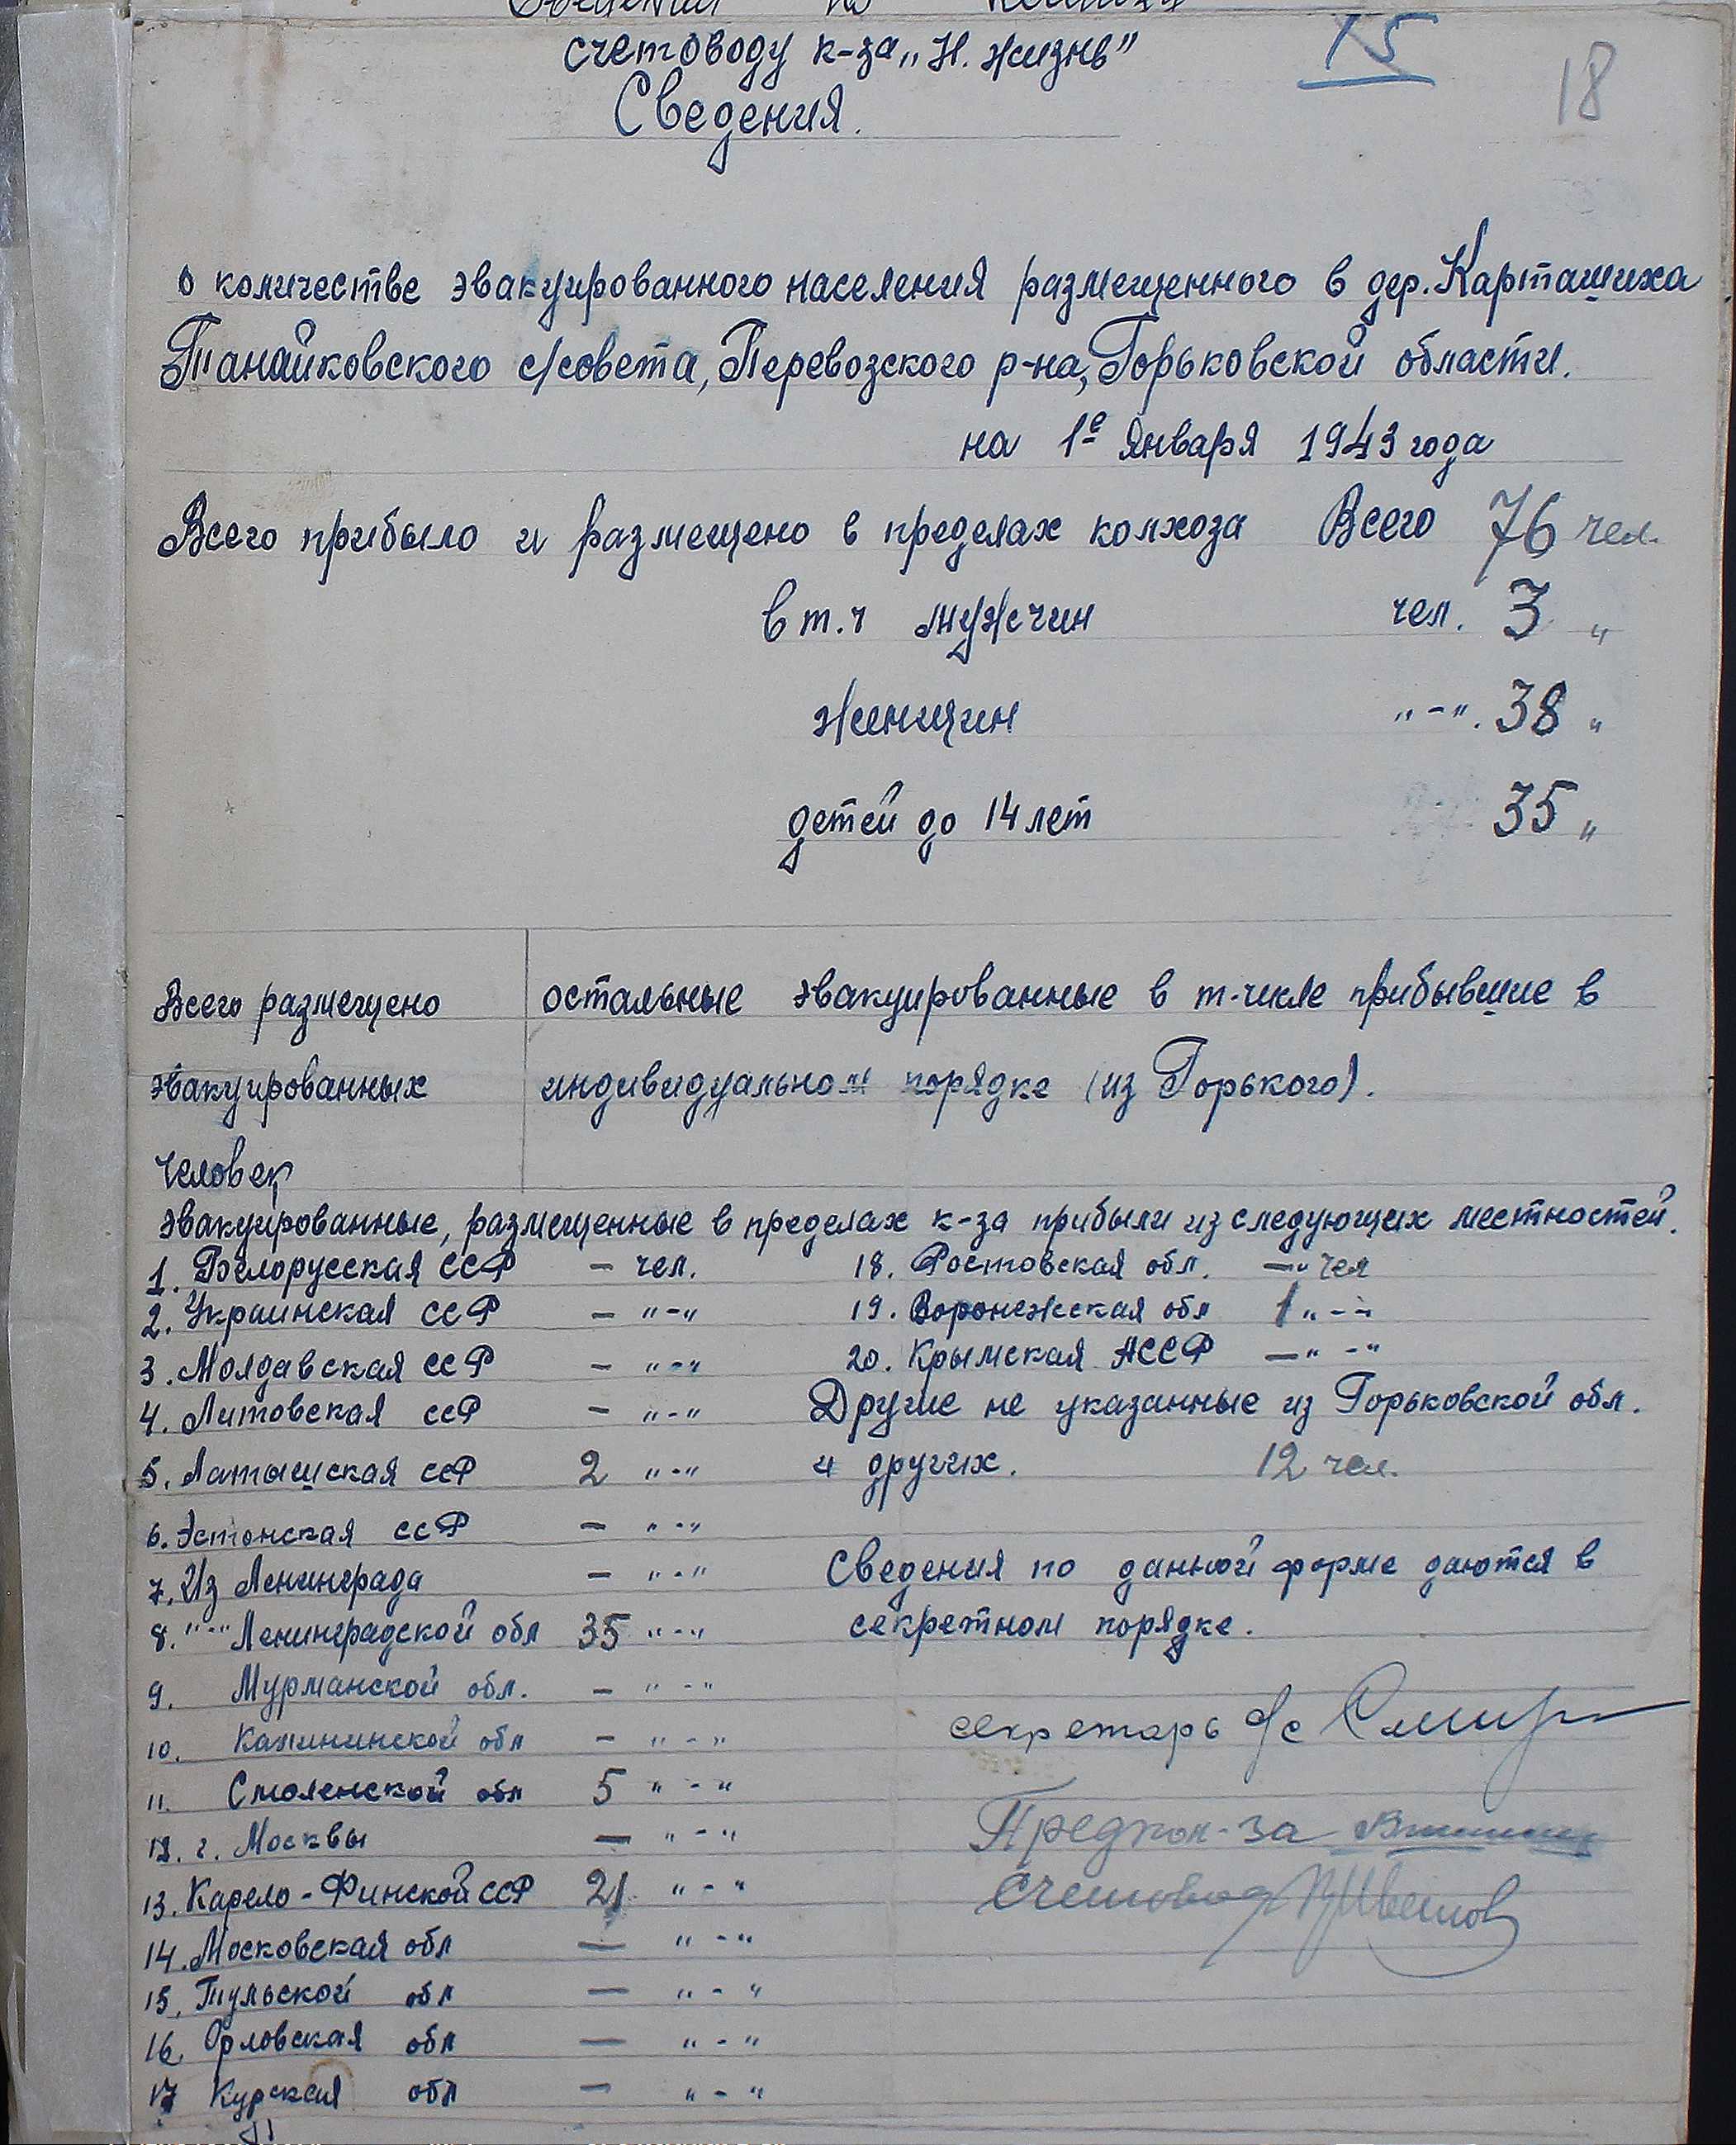 счетоводу к-за „Н. жизнь"
15
18
Сведения.
о количестве эвакуированного населения размещенного в дер. Карташиха
Танайковского с/совета, Перевозского р-на, Горьковской области.
на 1е января 1943 года
Всего прибыло и размещено в пределах колхоза Всего 76 чел.
в т.ч мужчин чел. 3 "
женщин "-". 38 "
детей до 14 лет 35 "
Всего размещено остальные эвакуированные в т-числе прибывшие в
эвакуированных индивидуальном порядке (из Горького).
человек
эвакуированные, размещенные в пределах к-за прибыли из следующих местностей.
1. Белорусская ССР – чел.
2. Украинская ССР – "-"
3. Молдавская ССР – "-"
4. Литовская ССР – "-"
5. Латышская ССР 2 "-"
6. Эстонская ССР – "-"
7. Из Ленинграда – "-"
8. "-" Ленинградской обл 35 "-"
9. Мурманской обл. – "-"
10. Калининской обл – "-"
11. Смоленской обл 5 "-"
12. г. Москвы — "-"
13. Карело-Финской ССР 21 "-"
14. Московская обл — "-"
15. Тульской обл — "-"
16. Орловская обл — "-"
17 Курская обл — "-"
18. Ростовская обл. —" чел
19. Воронежская обл 1 "-"
20. Крымская АССР —" -"
Другие не указанные из Горьковской обл.
и других. 12 чел.
Сведения по данной форме даются в
секретном порядке.
секретарь с/с
Предкол-за
Счетовод